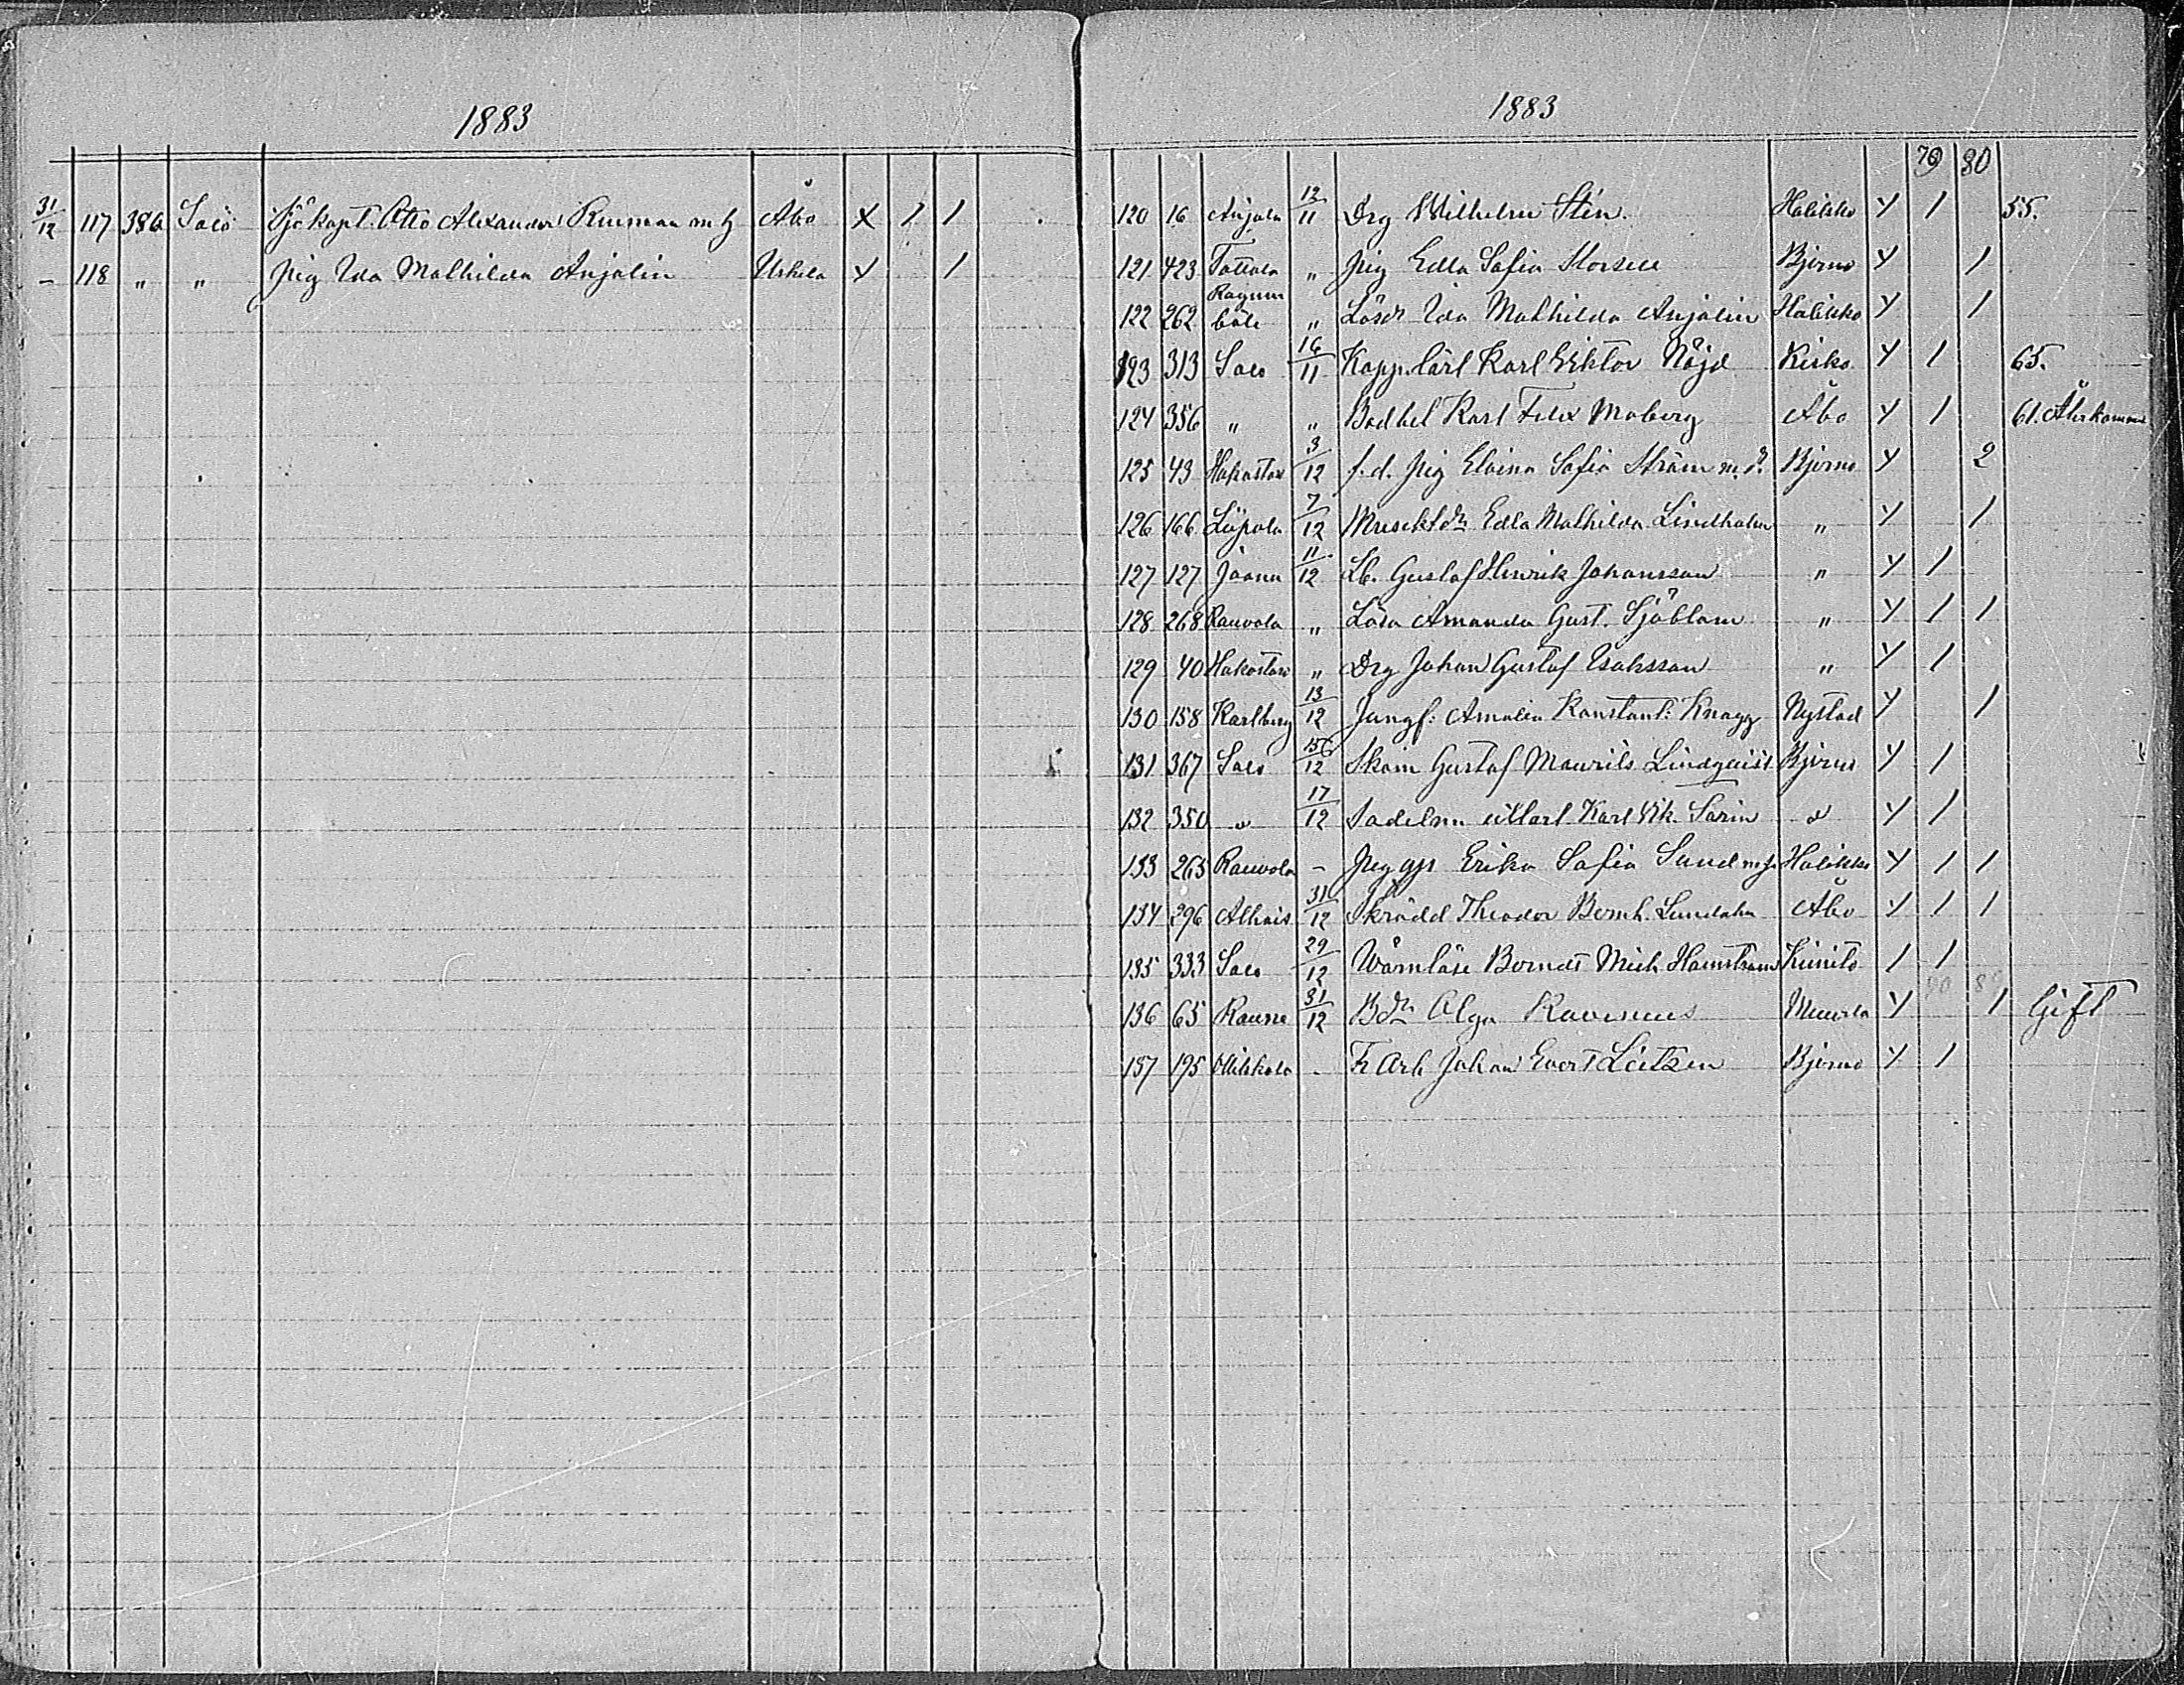 1883
31/12 117 386 Salo Sjökapt. Otto Alexander Ruuman m h Åbo X 1 1
- 118 " " Pig Ida Mathilda Anjalin Uskela X 1
1883
79 80
120 16 Anjala 12/11 Drg Wilhelm Sten. Halikko Y 1 55.
121 423 Tottola " Pig Edla Sofia Bjerno Y 1
Ragnm
122 262 böle " Lösdr Ida Mathilda Anjalin Halikko Y 1
123 313 Salo 16/11 Kopp.lärl Karl Viktor Nöjd Kisko Y 1 65.
124 356 " " Bodbet Karl Felix Moberg Åbo Y 1 61. Återkommen
125 43 Hakostaro 3/12 f.d. Pig Elvina Sofia Ström m. d. Bjerno Y 2
126 166 Liipola 7/12 Edla Mathilda Lindholm " Y 1
127 127 Joanu 11/12 Lb. Gustaf Henrik Johansson " Y 1
128 268 Rauvola " Lösa Amanda Gust. Sjöblom " Y 1 1
129 40 Hakostaro " Drg Johan Gustaf Isaksson " Y 1
130 158 Karlberg 13/12 Jungf: Amalia Konstant: Knagg Nystad Y 1
131 367 Salo 156/12 Skom Gustaf Maurits Lindqvist Bjerno Y 1
132 350 " 17/12 Sadelm Karl Vik. Sarin " Y 1
133 265 Rauvola - Pig gp Erika Sofia Sund m f. Halikko Y 1 1
134 296 Alhais 31/12 Skrädd Theodor Bernh. Lundahn Åbo Y 1 1
135 333 Salo 29/12 Berndt Mich Hamström Kimito 1 1
136 65 31/12 Bdr Olga Ravenius Muurla Y 1 Gift
137 195 Ollikkala - Fr Arb Johan Evert Leitzen Bjerno Y 1